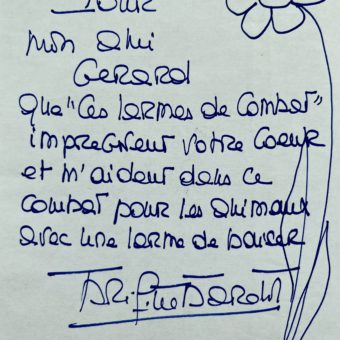 Pour
mon ami
Gerard
que "Ces larmes de combat"
impregnent votre coeur
et m'aident dans ce
combat pour les animaux
avec une larme de baiser
Brigitte Bardot